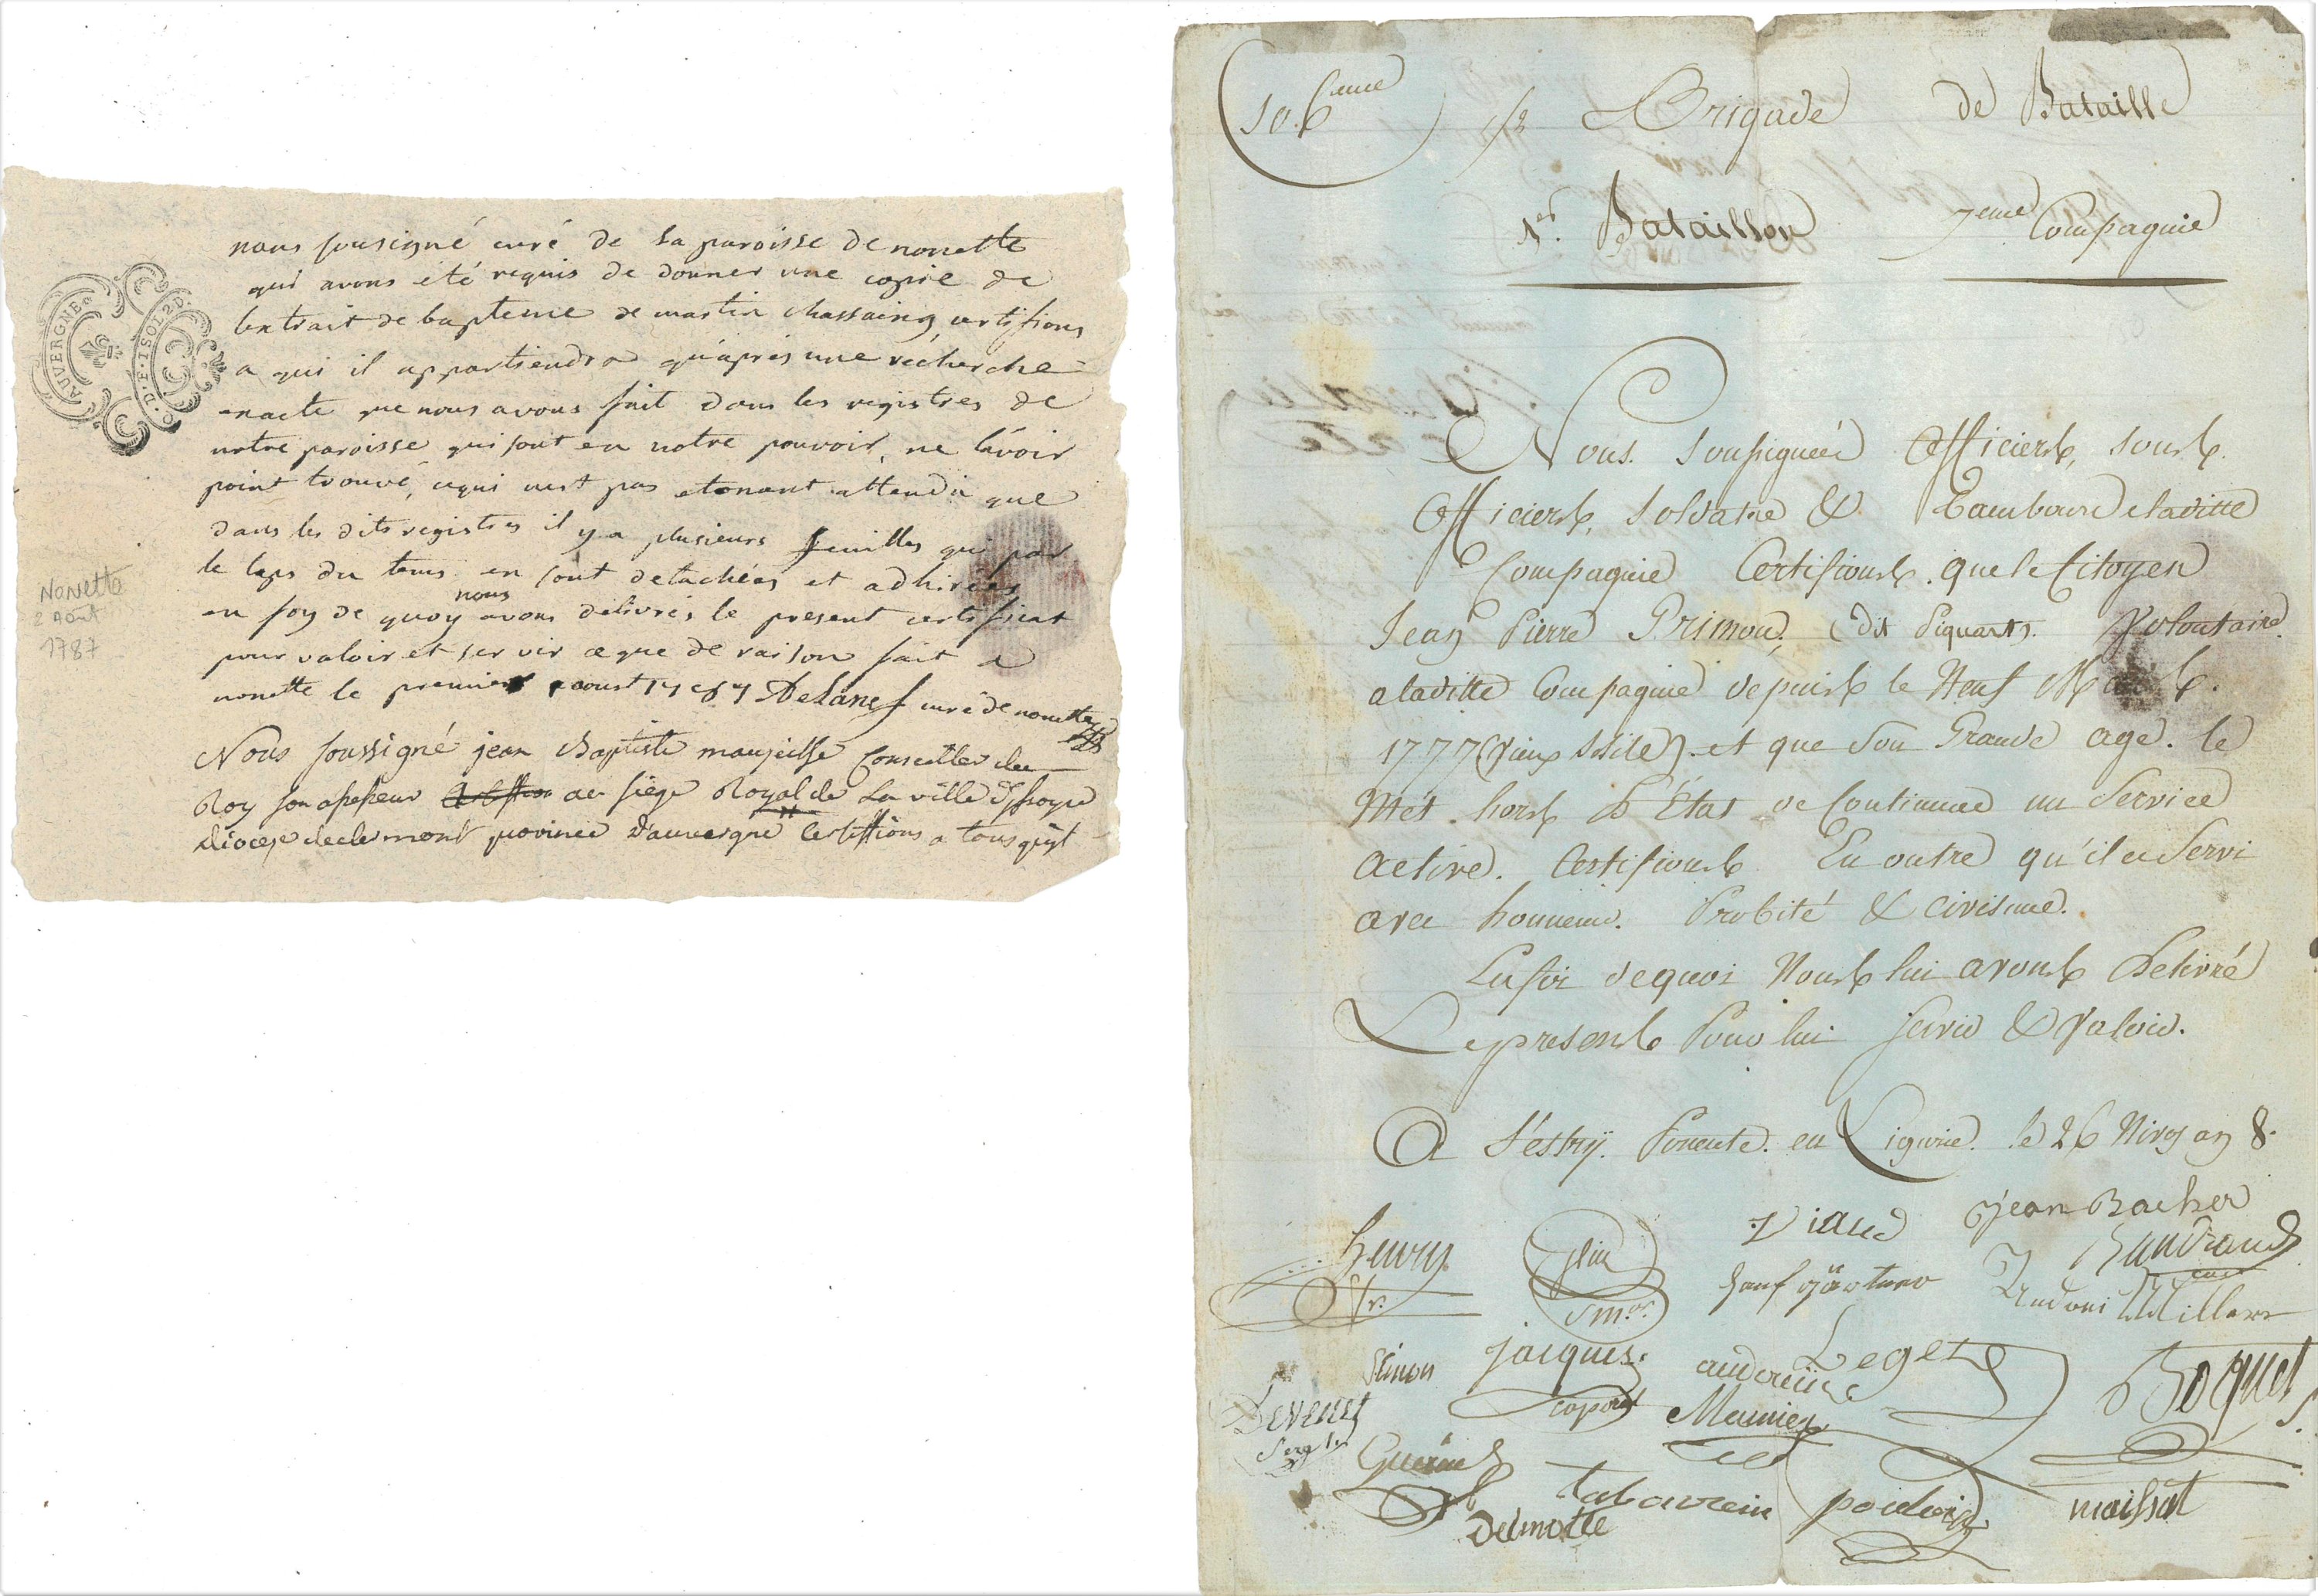 nous sousigné curé de la paroisse de nonette
qui avons été requis de donner une copie de
lextrait de bapteme de martin chassaing, certifions
a qui il appartiendra qu'après une recherche
exacte que nous avons fait dans les registres de
notre paroisse qui sont en notre pouvoir, ne lavoir
point trouvé, cequi nest pas etonant attendu que
dans les dits registres il y a plusieurs feuilles qui par
le laps du tems en sont detachées et adhirées
en foy de quoy nous avons délivrés le present certificat
pour valoir et servir ceque de raison fait a
nonette le premier aoust 1787 curé de nonette
Nous soussigné jean Baptiste Conseiller du
Roy son assesseur au siége Royal de La ville d'yssoyre
diocèse declermont province d'auvergne Certiffions a tous qu'il
AUVERGNE
G. D. E. 1 SOL 2 D.
Nonette
2 Août
1787
106eme 1/2 Brigade de Bataille
1er. Bataillon 7eme Compagnie
Nous Soussignéés Officiers, sous
Officiers, Soldats & Tambours de laditte
Compagnie Certifions que le Citoyen
Jean Pierre Primou, (dit Piquart). Volontaire
a laditte Compagnie depuis le Neuf Mars
1777 (vieux Stile) et que Son Grand age. le
Met hors D'État de Continuer un Service
Active. Certifions En outre qu'il a Servi
avec honneur. Probité & civisme.
En foi de quoi Nous lui avons Delivré
Le present Pour lui servir & Valoir.
A Sestry Ponente. en Ligurie le 26 Nivos an 8.
henry
Viaud
jean Bacher
Simon
jacques
caporal
Leget
Meunier
Boquet
Devenet
Serg
Delmotte
maissat